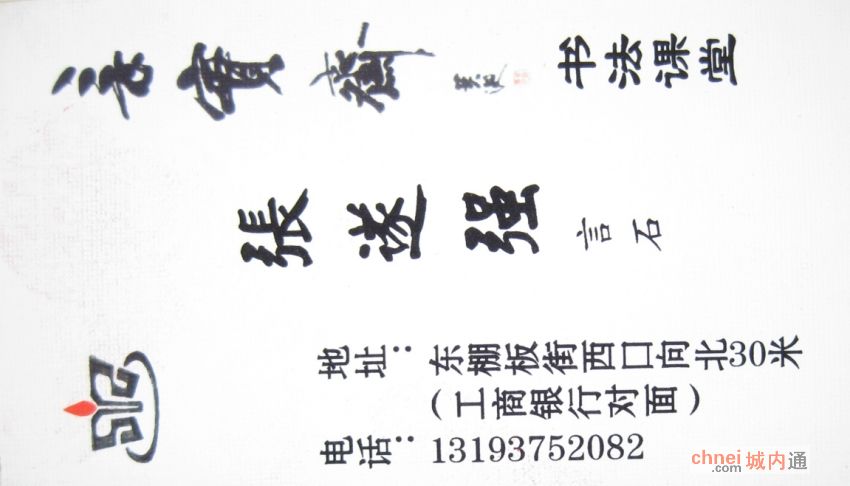 齋 书法课堂
張遂强 言石
地址：东棚板街西口向北30米
（工商银行对面）
电话：13193752082
chnei.com 城内通